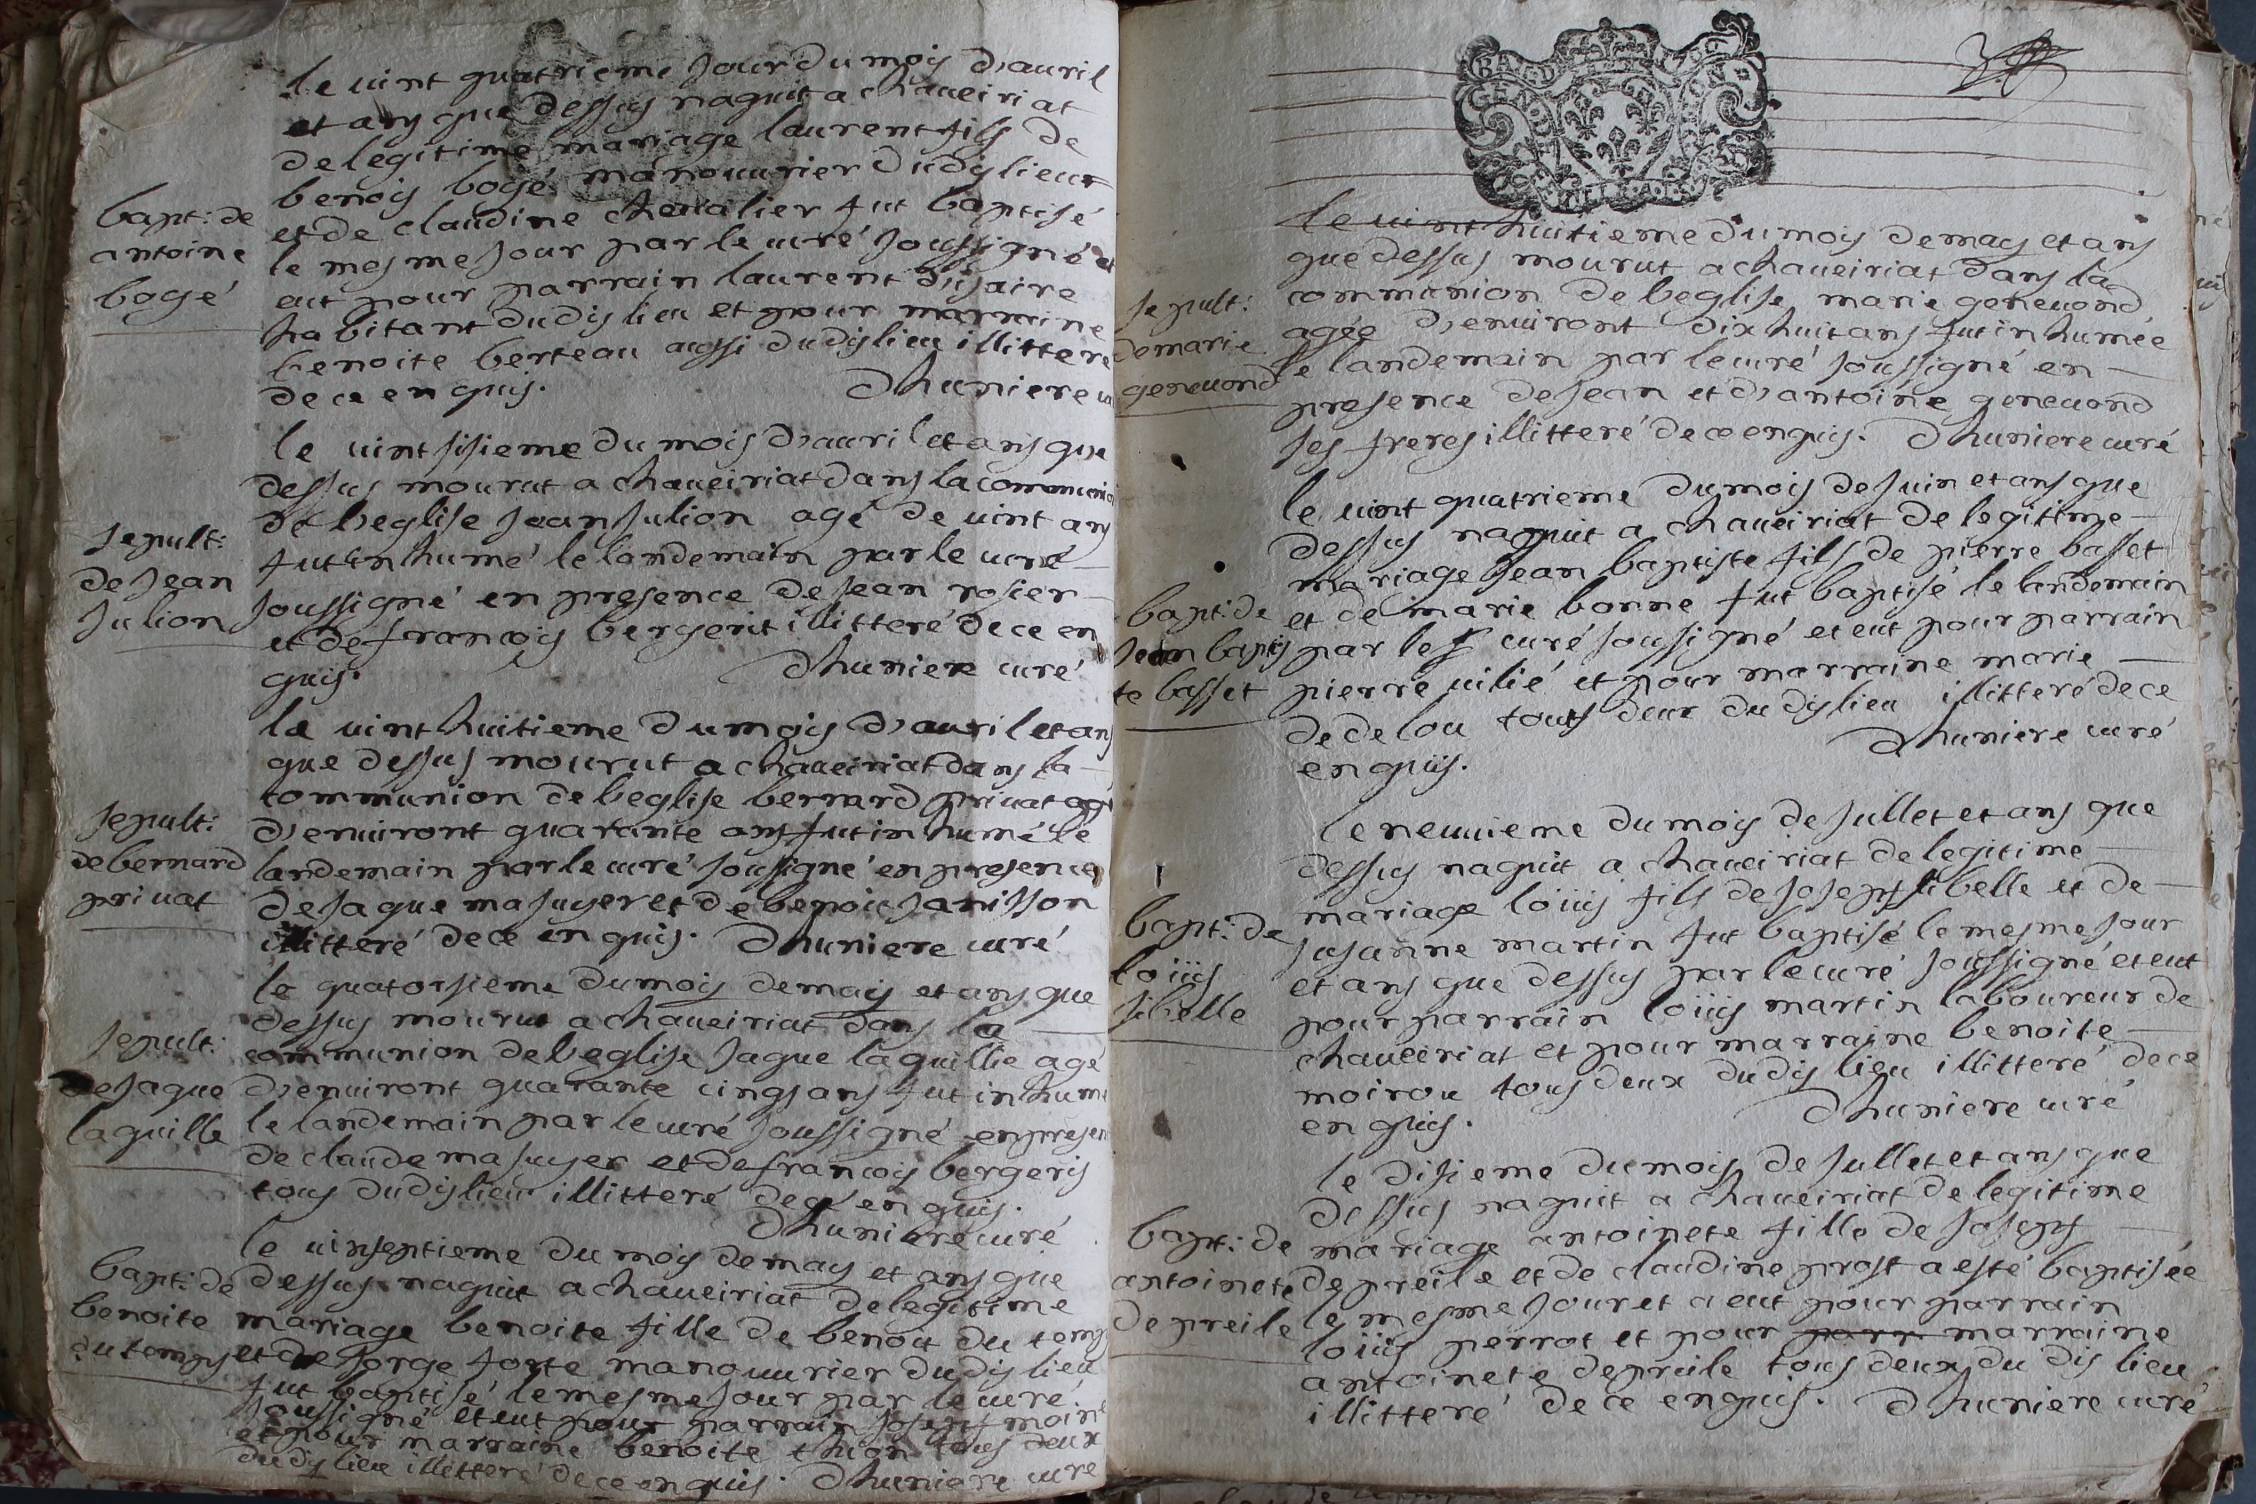 le vint quatrieme jour du mois d'auril
et ans que dessus naquit a chaueiriat
de legitime mariage laurent fils de
benois bogé manouurier dudis lieu
et de claudine cheualier fut baptisé
le mesme jour par le curé soussigné et
eut pour parrain laurent
habitant dudis lieu et pour marraine
benoite berteau aussi dudis lieu illitteré
de ce enquis. Dhuniere
bapt: de
antoine
bogé
le vint sisieme du mois d'auril et ans que
dessus mourut a chaueiriat dans la communion
de l'eglise jean julion agé de vint ans
fut inhumé le landemain par le curé
soussigné en presence de jean rosier
et de francois bergerit illitteré de ce en
quis. Dhuniere curé
sepult:
de jean
julion
le vint huitieme du mois d'auril et ans
que dessus mourut a chaueiriat dans la
communion de l'eglise bernard priuat agé
d'enuiront quarante ans fut inhumé le
landemain par le curé soussigné en presence
de jaque majuyer et de benoit janisson
illitteré de ce enquis. Dhuniere curé
sepult:
de bernard
priuat
le quatorsieme du mois de may et ans que
dessus mourut a chaueiriat dans la
communion de l'eglise jaque laquille agé
d'enuiront quarante cinq ans fut inhumé
le landemain par le curé soussigné en presen
de claude majuyer et de francois bergeris
tous dudis lieu illitteré de ce enquis.
Dhuniere curé
sepult:
de jaque
laquille
le vinseptieme du mois de may et ans que
dessus naquit a chaueiriat de legitime
mariage benoite fille de benoit du temps
et de jorge forte manouurier dudis lieu
fut baptisé le mesme jour par le curé
soussigné et eut pour parrain joseph moine
et pour marraine benoite thion tous deux
dudis lieu illitteré de ce enquis. Dhuniere curé
bapt: de
benoite
du temps
le vint huitieme du mois de may et ans
que dessus mourut a chaueiriat dans la
communion de l'eglise marie geneuond
agée d'enuiront dix huit ans fut inhumée
le landemain par le curé soussigné en
presence de jean et d'antoine geneuond
ses freres illitteré de ce enquis. Dhuniere curé
sepult:
de marie
geneuond
le vint quatrieme du mois de juin et ans que
dessus naquit a chaueiriat de legitime
mariage jean baptiste fils de pierre basset
et de marie bonne fut baptisé le landemain
par le curé soussigné et eut pour parrain
pierre vilié et pour marraine marie
de delou tous deux dudis lieu illitteré de ce
enquis. Dhuniere curé
bapt: de
jean baptis
te basset
le neuuieme du mois de juillet et ans que
dessus naquit a chaueiriat de legitime
mariage loüis fils de joseph sibelle et de
susanne martin fut baptisé le mesme jour
et ans que dessus par le curé soussigné et eut
pour parrain loüis martin laboureur de
chaueiriat et pour marraine benoite
moirou tous deux dudis lieu illitteré de ce
enquis. Dhuniere curé
bapt: de
loüis
sibelle
le disieme du mois de jullet et ans que
dessus naquit a chaueiriat de legitime
mariage antoinete fille de joseph
de preile et de claudine prost a esté baptisée
le mesme jour et a eut pour parrain
loüis perrot et pour parr marraine
antoinete de preile tous deux du dis lieu
illitteré de ce enquis. Dhuniere curé
bapt: de
antoinete
de preile